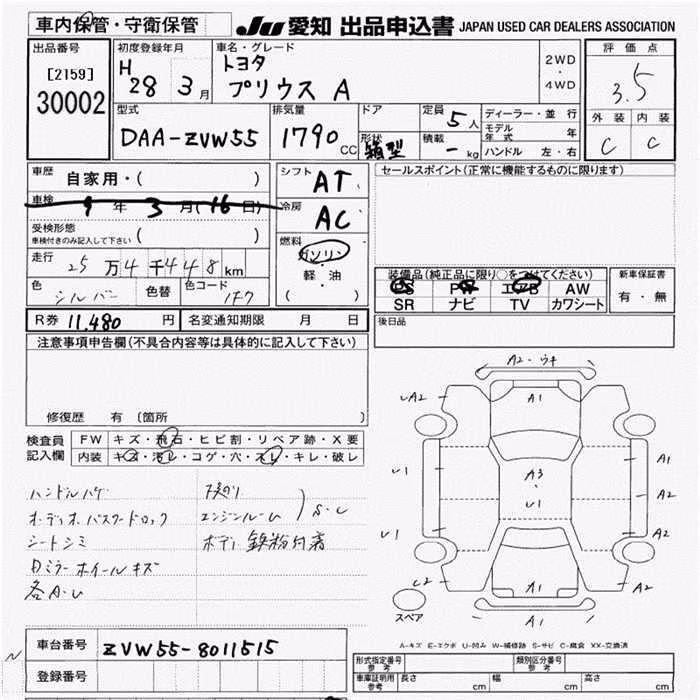 車内保管・守衛保管 JU 愛知 出品申込書 JAPAN USED CAR DEALERS ASSOCIATION
出品番号 初度登録年月 車名・グレード 評価点
[2159] H トヨタ 2WD
30002 28 3月 プリウス A ・ 3.5
4WD
型式 排気量 ドア 定員 5人 ディーラー・並行 外装 内装
DAA-ZVW55 1790 CC 形状 積載 モデル年式 年 C C
箱型 - kg ハンドル 左・右
車歴 自家用・( ) シフト AT セールスポイント(正常に機能するものに限ります)
車検 9年 3月(16日) 冷房 AC
受検形態 ( )
車検付きのみ記入して下さい 燃料
走行 25万4千448km ガソリン 装備品(純正品に限り○をつけてください) 新車保証書
軽・油 PS PW エアB AW 有・無
色 シルバー 色替 色コード 1F7 ( ) SR ナビ TV カワシート
R券 11,480円 名変通知期限 月 日 後日品
注意事項申告欄(不具合内容等は具体的に記入して下さい)
修復歴 有 〔箇所
検査員 FW キズ・飛石・ヒビ割・リペア跡・X要
記入欄 内装 キズ・汚レ・コゲ・穴・スレ・キレ・破レ
A2-ウキ
A2 A1
U1 A3 A1
U1 A2
U1 A2
C2 A1 A2
A1
ハンドルハゲ 下廻り
オーディオパスワードロック エンジンルーム S・C
シートシミ ボディ鉄粉付着
ミラー ホイールキズ
各A・U
スペア
A-キズ E-エクボ U-凹み W-補修跡 S-サビ C-腐食 XX-交換済
車台番号 ZVW55-8011515
登録番号
型式指定番号 参考 類別区分番号 参考
車庫証明用 参考 長さ cm 幅 cm 高さ cm